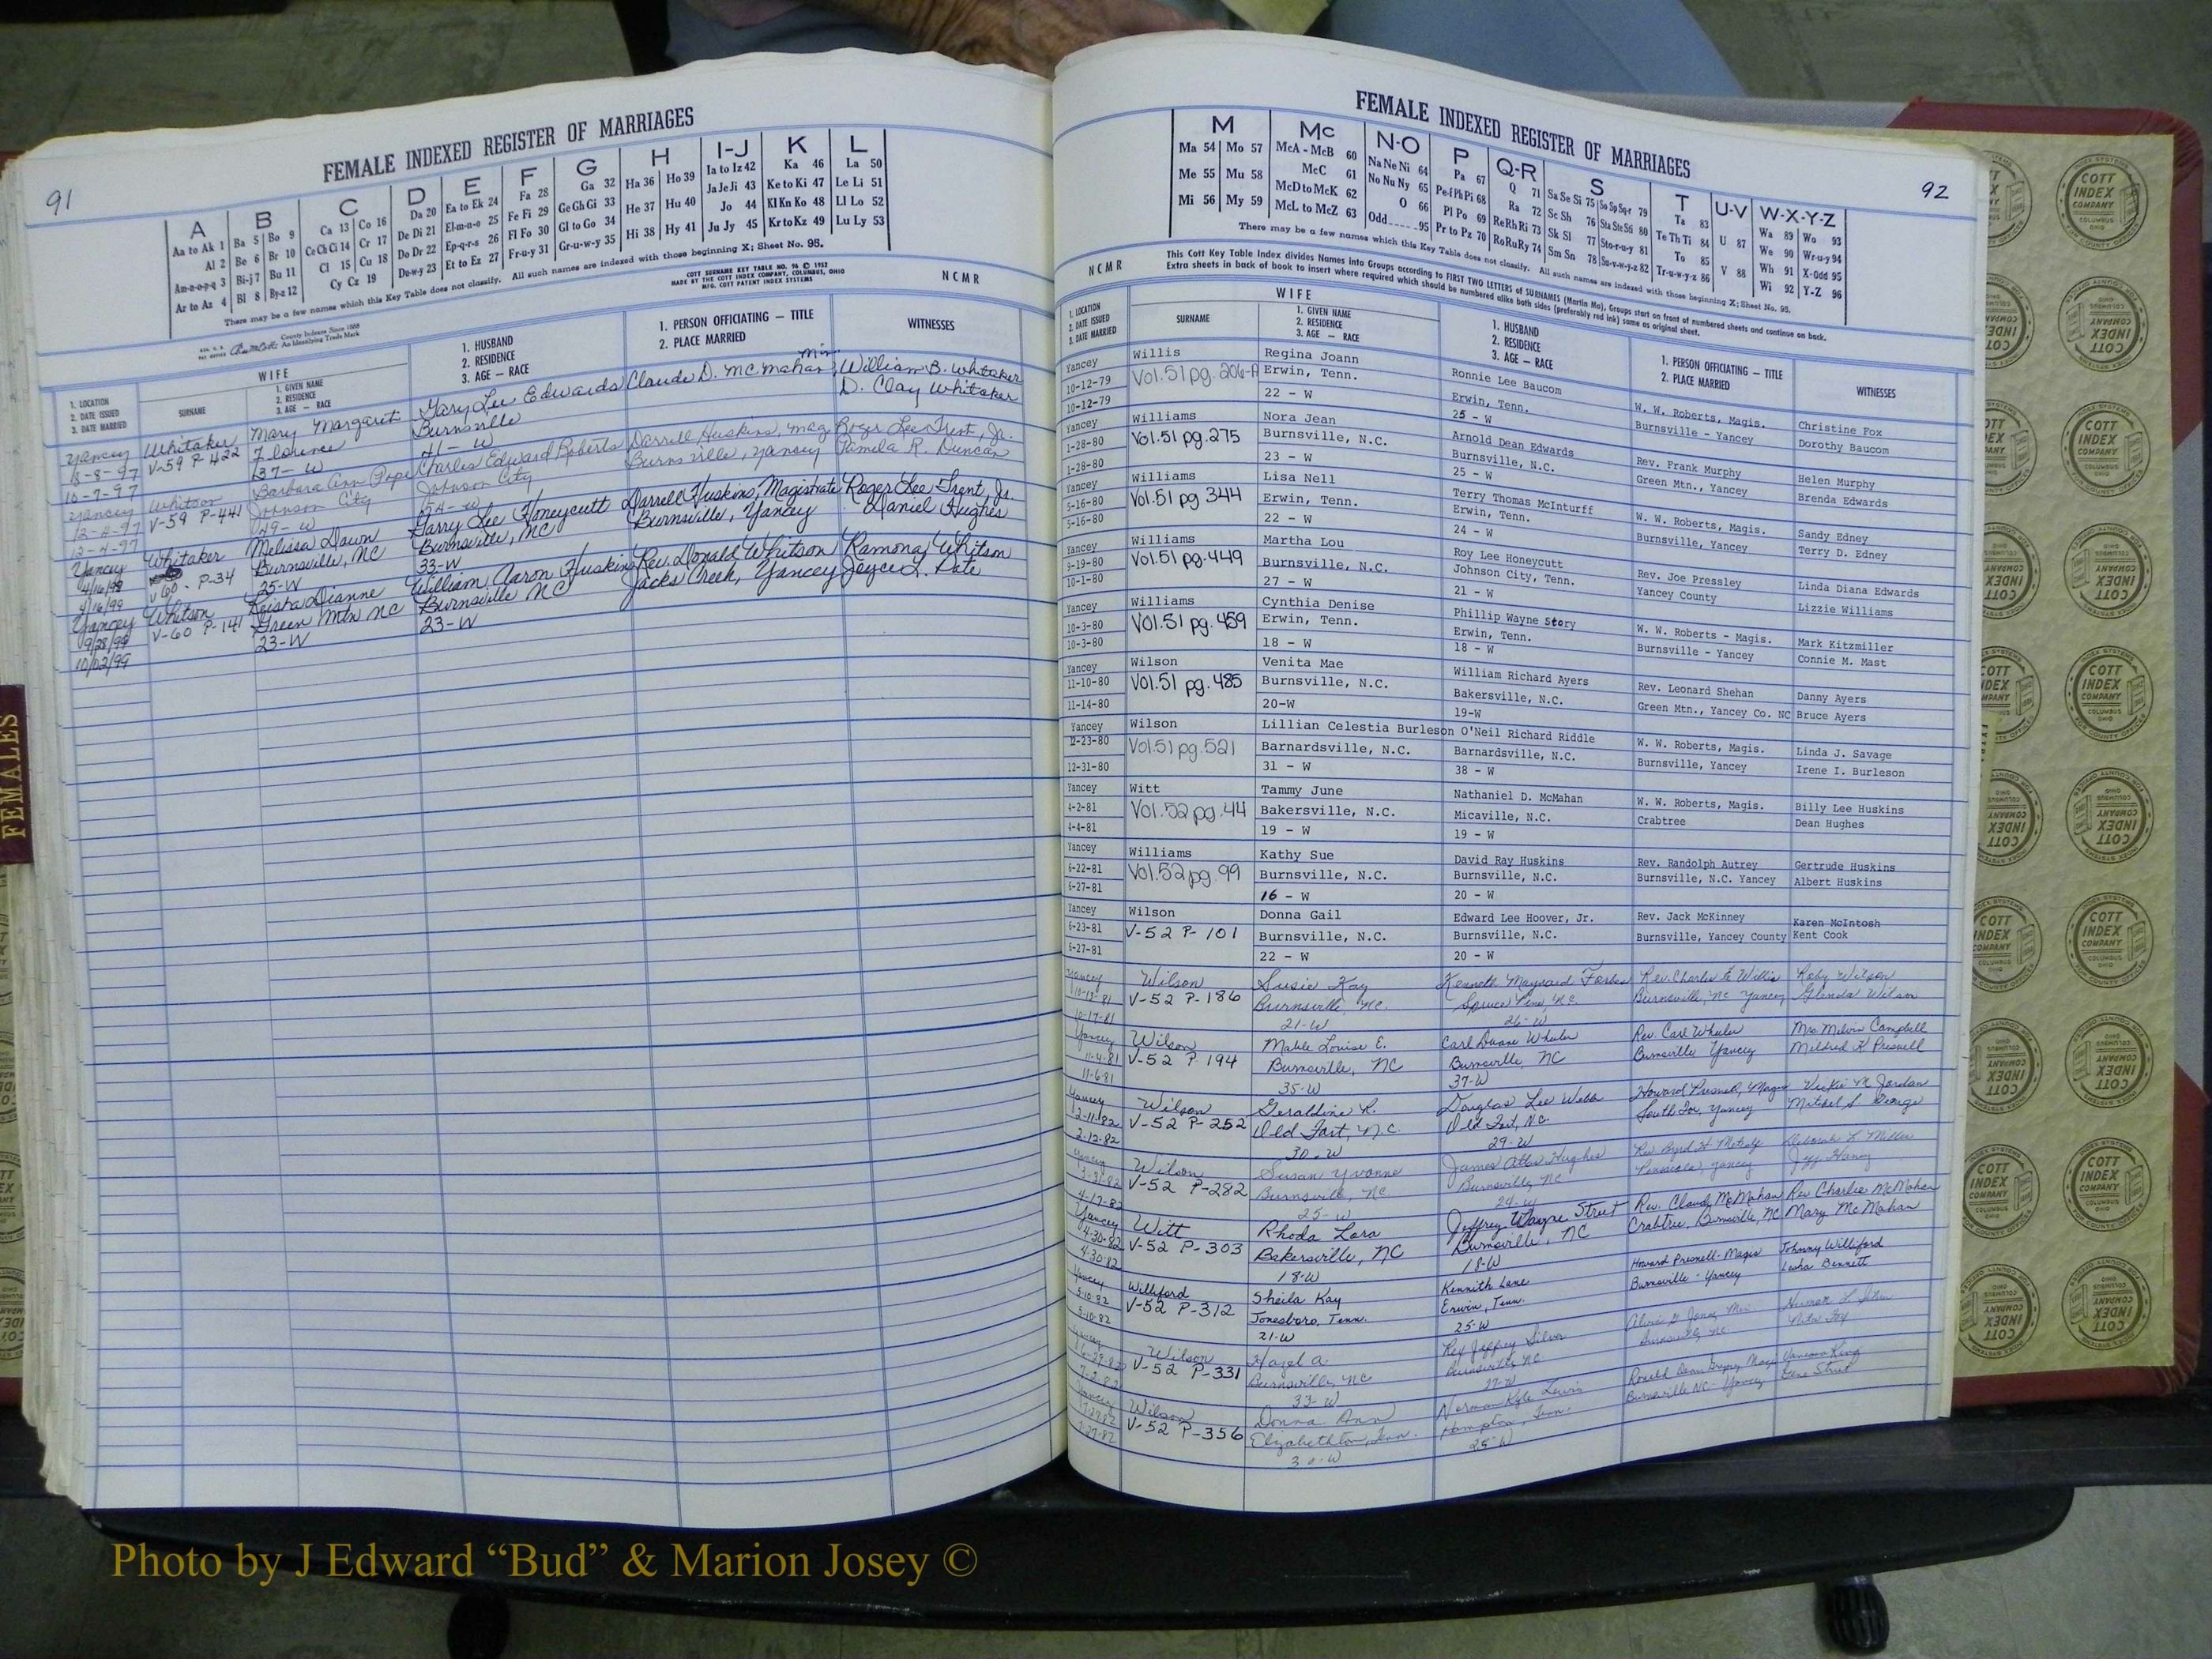 91
FEMALE INDEXED REGISTER OF MARRIAGES
A B C D E F G H I-J K L
Aa to Ak 1 Ba 5 Bo 9 Ca 13 Co 16 Da 20 Ea to Ek 24 Fa 28 Ga 32 Ha 36 Ho 39 Ia to Iz 42 Ka 46 La 50
Al 2 Be 6 Br 10 Ce Ch Ci 14 Cr 17 De Di 21 El-m-n-o 25 Fe Fi 29 Ge Gh Gi 33 He 37 Hu 40 Ja Je Ji 43 Ke to Ki 47 Le Li 51
Am-n-o-p-q 3 Bi-j 7 Bu 11 Cl 15 Cu 18 Do Dr 22 Ep-q-r-s 26 Fl Fo 30 Gl to Go 34 Hi 38 Hy 41 Jo 44 Kl Kn Ko 48 Ll Lo 52
Ar to Az 4 Bl 8 By-z 12 Cy Cz 19 Du-w-y 23 Et to Ez 27 Fr-u-y 31 Gr-u-w-y 35 Ju Jy 45 Kr to Kz 49 Lu Ly 53
There may be a few names which this Key Table does not classify. All such names are indexed with those beginning X; Sheet No. 95.
County Indexes Since 1888
An Identifying Trade Mark
COTT SURNAME KEY TABLE NO. 96 © 1952
MADE BY THE COTT INDEX COMPANY, COLUMBUS, OHIO
MFG. COTT PATENT INDEX SYSTEMS
NCMR
1. LOCATION
2. DATE ISSUED
3. DATE MARRIED
WIFE
SURNAME
1. GIVEN NAME
2. RESIDENCE
3. AGE — RACE
1. HUSBAND
2. RESIDENCE
3. AGE — RACE
1. PERSON OFFICIATING — TITLE
2. PLACE MARRIED
WITNESSES
Yancey Whitaker Mary Margaret Gary Lee Edwards Claude D. McMahan, Min. William B. Whitaker
V-59 P-422 Florence Burnsville D. Clay Whitaker
10-7-97 37- W 41- W
Yancey Whitson Barbara Ann Pope Charles Edward Roberts Darrell Huskins, Mag Roger Lee Trent, Jr.
12-4-97 V-59 P-441 Johnson City Johnson City Burnsville, Yancey Pamela R. Duncan
12-4-97 49- W 54- W
Yancey Whitaker Melissa Dawn Garry Lee Honeycutt Darrell Huskins, Magistrate Roger Lee Trent, Jr.
4/16/99 V60 - P-34 Burnsville, NC Burnsville, NC Burnsville, Yancey Daniel Hughes
4/16/99 25-W 33-W
Yancey Whitson Keisha Dianne William Aaron Huskins Rev. Donald Whitson Ramona Whitson
9/28/99 V-60 P-141 Green Mtn NC Burnsville NC Jacks Creek, Yancey Joyce L. Pate
10/02/99 23-W 23-W
FEMALES
92
FEMALE INDEXED REGISTER OF MARRIAGES
M Mc N-O P Q-R S T U-V W-X-Y-Z
Ma 54 Mo 57 McA - McB 60 Na Ne Ni 64 Pa 67 Q 71 Sa Se Si 75 So Sp Sq-r 79 Ta 83 U 87 Wa 89 Wo 93
Me 55 Mu 58 McC 61 No Nu Ny 65 Pe-f Ph Pi 68 Ra 72 Sc Sh 76 Sta Ste Sti 80 Te Th Ti 84 V 88 We 90 Wr-u-y 94
Mi 56 My 59 McD to McK 62 O 66 Pl Po 69 Re Rh Ri 73 Sk Sl 77 Sto-r-u-y 81 To 85 Wh 91 X-Odd 95
McL to McZ 63 Odd 95 Pr to Pz 70 Ro Ru Ry 74 Sm Sn 78 Su-v-w-y-z 82 Tr-u-w-y-z 86 Wi 92 Y-Z 96
There may be a few names which this Key Table does not classify. All such names are indexed with those beginning X; Sheet No. 95.
NCMR
This Cott Key Table Index divides Names into Groups according to FIRST TWO LETTERS of SURNAMES (Martin Mo), Groups start on front of numbered sheets and continue on back.
Extra sheets in back of book to insert where required which should be numbered alike both sides (preferably red ink) same as original sheet.
1. LOCATION
2. DATE ISSUED
3. DATE MARRIED
WIFE
SURNAME
1. GIVEN NAME
2. RESIDENCE
3. AGE — RACE
1. HUSBAND
2. RESIDENCE
3. AGE — RACE
1. PERSON OFFICIATING — TITLE
2. PLACE MARRIED
WITNESSES
Yancey Willis Regina Joann Ronnie Lee Baucom W. W. Roberts, Magis. Christine Fox
10-12-79 Vol.51 pg. 206-A Erwin, Tenn. Erwin, Tenn. Burnsville - Yancey Dorothy Baucom
10-12-79 22 - W 25 - W
Yancey Williams Nora Jean Arnold Dean Edwards Rev. Frank Murphy Helen Murphy
1-28-80 Vol.51 pg.275 Burnsville, N.C. Burnsville, N.C. Green Mtn., Yancey Brenda Edwards
1-28-80 23 - W 25 - W
Yancey Williams Lisa Nell Terry Thomas McInturff W. W. Roberts, Magis. Sandy Edney
5-16-80 Vol.51 pg 344 Erwin, Tenn. Erwin, Tenn. Burnsville, Yancey Terry D. Edney
5-16-80 22 - W 24 - W
Yancey Williams Martha Lou Roy Lee Honeycutt Rev. Joe Pressley Linda Diana Edwards
9-19-80 Vol.51 pg.449 Burnsville, N.C. Johnson City, Tenn. Yancey County Lizzie Williams
10-1-80 27 - W 21 - W
Yancey Williams Cynthia Denise Phillip Wayne Story W. W. Roberts - Magis. Mark Kitzmiller
10-3-80 Vol.51 pg.459 Erwin, Tenn. Erwin, Tenn. Burnsville - Yancey Connie M. Mast
10-3-80 18 - W 18 - W
Yancey Wilson Venita Mae William Richard Ayers Rev. Leonard Shehan Danny Ayers
11-10-80 Vol.51 pg.485 Burnsville, N.C. Bakersville, N.C. Green Mtn., Yancey Co. NC Bruce Ayers
11-14-80 20-W 19-W
Yancey Wilson Lillian Celestia Burleson O'Neil Richard Riddle W. W. Roberts, Magis. Linda J. Savage
12-23-80 Vol.51 pg.521 Barnardsville, N.C. Barnardsville, N.C. Burnsville, Yancey Irene I. Burleson
12-31-80 31 - W 38 - W
Yancey Witt Tammy June Nathaniel D. McMahan W. W. Roberts, Magis. Billy Lee Huskins
4-2-81 Vol.52 pg.44 Bakersville, N.C. Micaville, N.C. Crabtree Dean Hughes
4-4-81 19 - W 19 - W
Yancey Williams Kathy Sue David Ray Huskins Rev. Randolph Autrey Gertrude Huskins
6-22-81 Vol.52 pg.99 Burnsville, N.C. Burnsville, N.C. Burnsville, N.C. Yancey Albert Huskins
6-27-81 16 - W 20 - W
Yancey Wilson Donna Gail Edward Lee Hoover, Jr. Rev. Jack McKinney Karen McIntosh
6-23-81 V-52 P-101 Burnsville, N.C. Burnsville, N.C. Burnsville, Yancey County Kent Cook
6-27-81 22 - W 20 - W
Yancey Wilson Susie Kay Kenneth Maynard Forbes Rev. Charles E. Willis Roby Wilson
10-13-81 V-52 P-186 Burnsville, NC. Spruce Pine, N.C. Burnsville, NC Yancey Glenda Wilson
10-17-81 21-W 26-W
Yancey Wilson Mable Louise E. Carl Duane Wheeler Rev. Carl Wheeler Mrs. Melvin Campbell
11-4-81 V-52 P-194 Burnsville, NC Burnsville, NC Burnsville Yancey Mildred K Presnell
11-6-81 35-W 37-W
Yancey Wilson Geraldine R. Douglas Lee Webb Howard Presnell, Magis Vickie M. Jordan
2-11-82 V-52 P-252 Old Fort, N.C. Old Fort, N.C. South Toe, Yancey Mitchel S. George
2-12-82 30-W 29-W
Yancey Wilson Susan Yvonne James Atlas Hughes Rev Byrd H. Metcalf Deborah L. Miller
3-31-82 V-52 P-282 Burnsville, NC Burnsville, NC Pensacola, Yancey Jeff Haney
4-17-82 25-W 24-W
Yancey Witt Rhoda Lara Jeffrey Wayne Street Rev. Claude McMahan Rev Charlie McMahan
4-30-82 V-52 P-303 Bakersville, NC Burnsville, NC Crabtree, Burnsville, NC Mary McMahan
4-30-82 18-W 18-W
Yancey Williford Sheila Kay Kennith Lane Howard Presnell-Magis Johnny Williford
5-10-82 V-52 P-312 Jonesboro, Tenn. Erwin, Tenn. Burnsville - Yancey Lesha Bennett
5-10-82 21-W 25-W
Yancey Wilson Hazel A. Rex Jeffrey Silver
6-29-82 V-52 P-331 Burnsville, NC Burnsville, NC Burnsville, NC
7-2-82 33-W 27-W
Yancey Wilson Donna Ann Norman Kyle Lewis Vanessa King
7-27-82 V-52 P-356 Elizabethton, Tenn. Hampton, Tenn. Burnsville NC - Yancey Gene Street
7-27-82 25-W
COTT INDEX COMPANY COLUMBUS OHIO
INDEX SYSTEMS FOR COUNTY OFFICES
Photo by J Edward “Bud” & Marion Josey ©